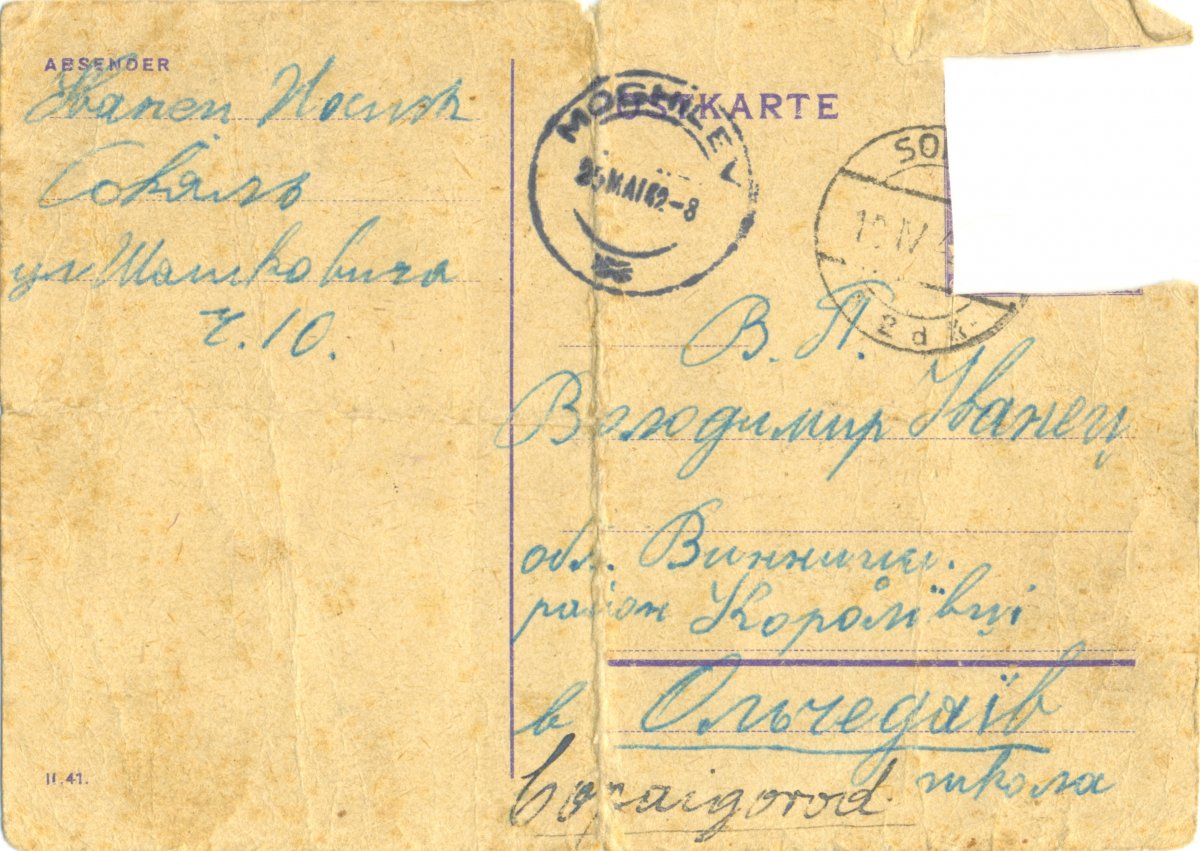 ABSENDER
Іванец Носик
Сокаль
ул Шашковича
ч. 10.
II.41.
POSTKARTE
MOGHILEV
25 MAI 42-8
SO
IV
2 d k
В. П.
Володимир Іванец
обл. Винници.
район Королівці
в Ольчедаїв
школа
Copaigorod.